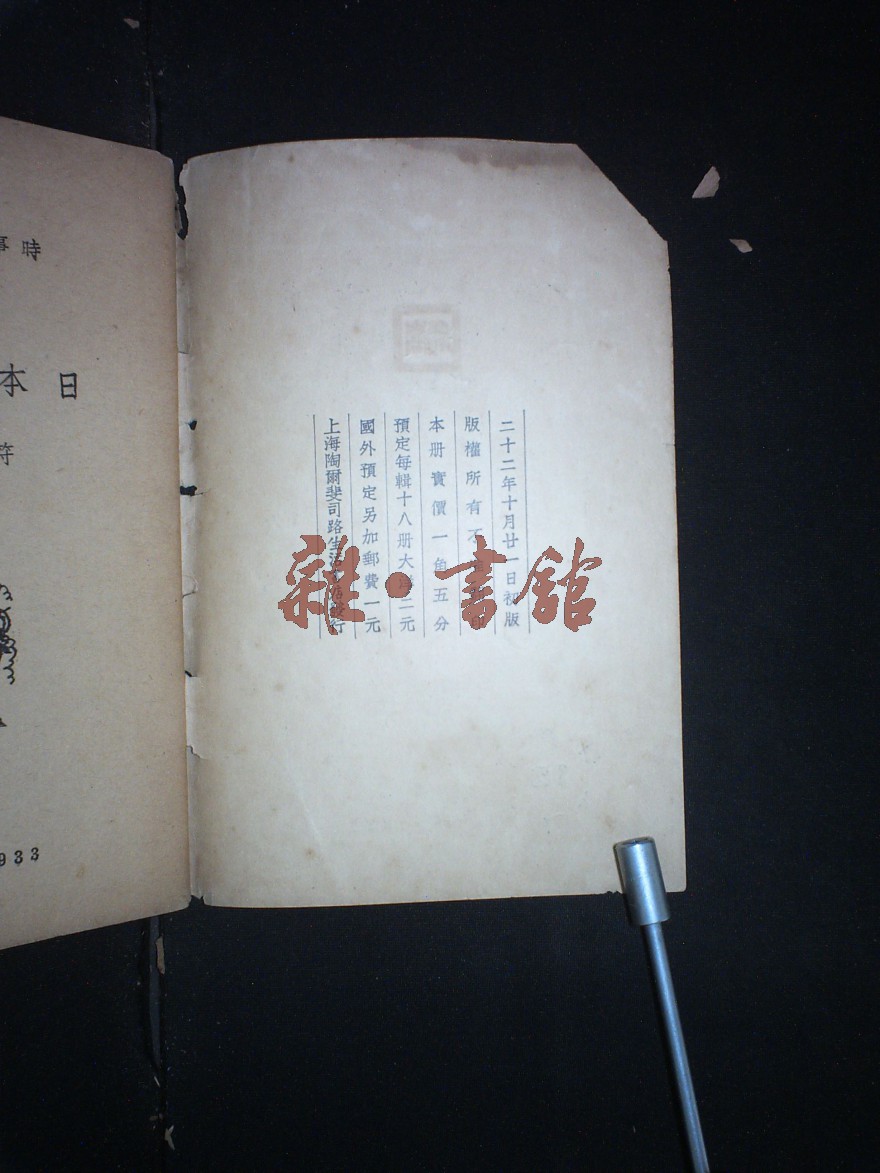 二十二年十月廿一日初版
版權所有不印
本册實價一角五分
預定每輯十八册大洋二元
國外預定另加郵費一元
上海陶爾斐司路生活書店發行
雜・書館
時事
日本
符
933